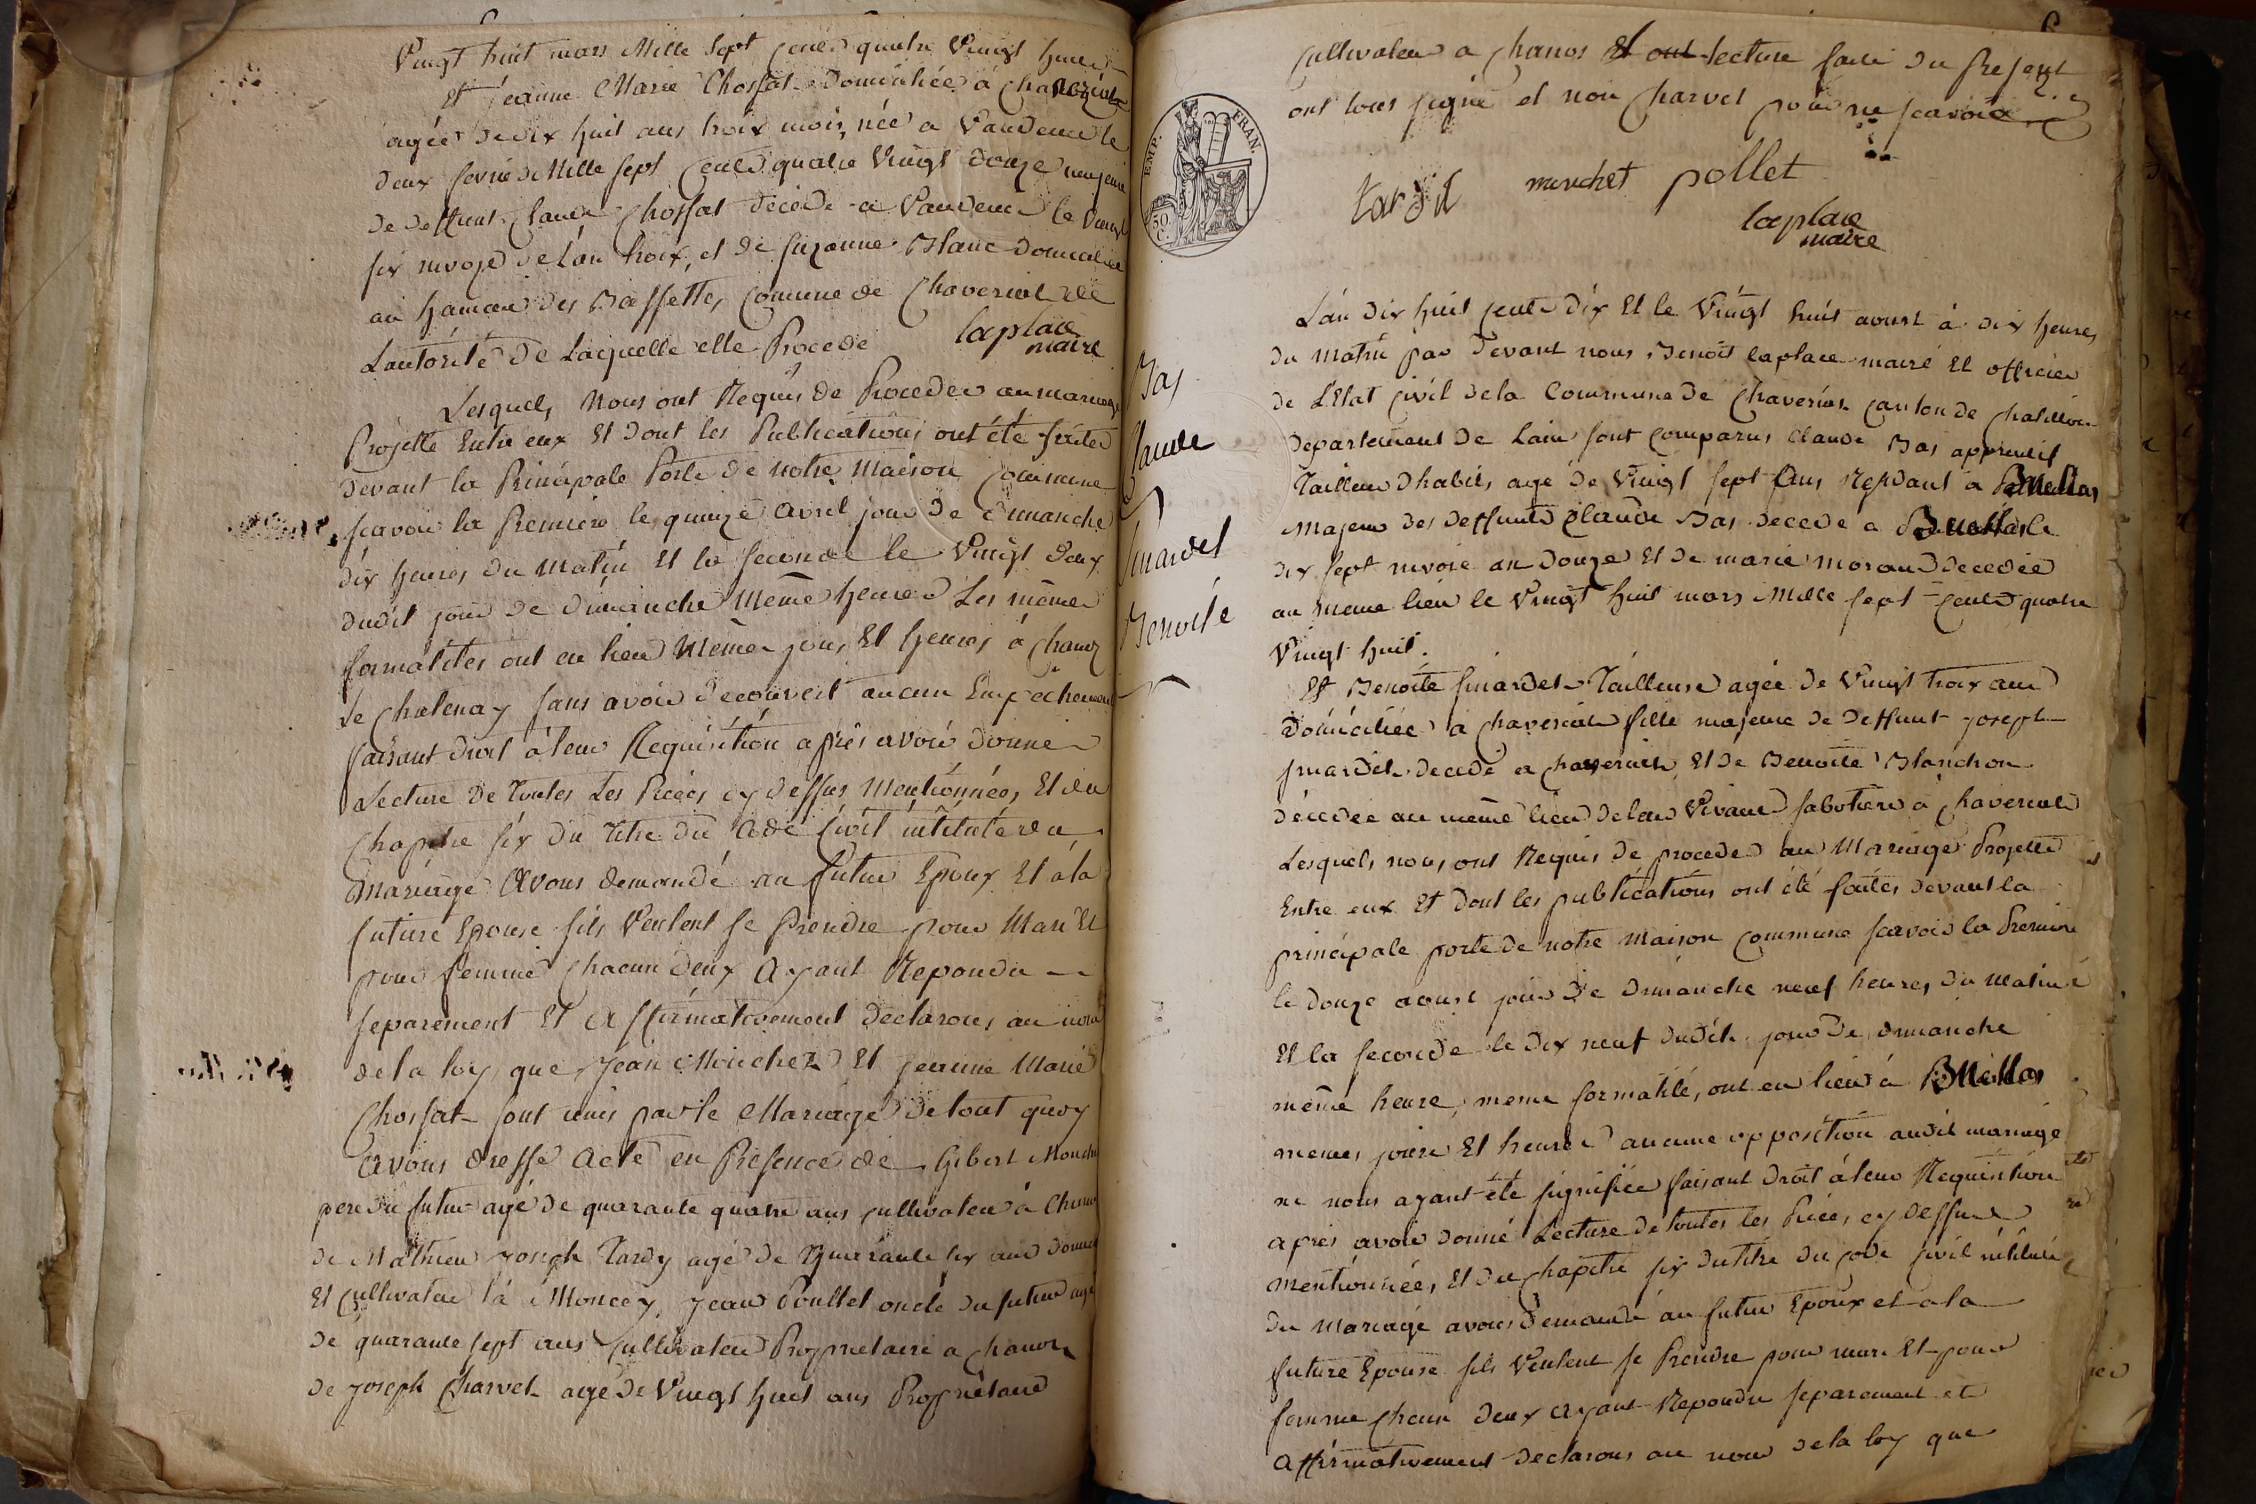 Vingt huit mars Mille Sept Cents quatre Vingt huit
Et jeanne Marie Chossat Domiciliée à Chaveriat
agée de dix huit ans troix mois, née a Vandeins le
deux fevrié Mille sept Cents quatre Vingt douze mineure
de deffunt Claude Chossat décédé a Vandeins le Vingt
six nivoze de l'an troix, et de Suzanne Blanc domiciliée
au hameau des Bassettes Comune de Chaveriat de
Lautorité de Laquelle elle Procede laplace
maire
Lesquels Nous ont Requis de Proceder au mariage
Projetté Entre eux Et dont les Publications ont été faites
devant la Principale Porte de notre Maison Commune
scavoir la Premiere le quinze avril jour de dimanche
dix heures du Matin Et la seconde le Vingt deux
dudit jour de dimanche Même heure Les même
formalites ont eu lieu Même jour Et heures à Chanoz
de Chatenay sans avoir decouvert aucun Empechement
faisant droit à leur Requisition après avoir donné
Lecture de Toutes Les Pièces cy dessus Mentionnées, Et du
Chapitre six du Titre du Code Civil intitulé du
Mariage Avons demandé au futur Epoux Et à la
future Epouse sils Veulent se Prendre pour Mari Et
pour femme Chacun deux Ayant Repondu
separement Et Affirmativement Declarons au nom
de la loy que Jean Monchet Et jeanne Marie
Chossat sont unis par le Mariage de tout quoy
Avons dressé Acte en Presence de Gibert Monchet
pere du futur agé de quarante quatre ans cultivateur à Chanoz
de Mathieu joseph Tardy agé de quarante six ans
Et Cultivateur à Moncey, jean Poullet oncle du futur agé
de quarante sept ans Cultivateur Proprietaire a Chanoz
de joseph Charvet agé de Vingt huit ans Proprietaire
Cultivateur a Chanos Et ont lecture faite du Present
ont tous signé et non Charvet pour ne scavoir
EMP. FRAN.
50 C.
tardit monchet pollet
laplace
maire
Bas
Claude
Smardet
Benoite
L'an dix huit cents dix Et le Vingt huit aoust à dix heures
du matin par devant nous Benoit laplace maire Et officier
de L'Etat Civil de la Commune de Chaveriat canton de Chatillon
departement de Lain sont comparus Claude Bas apprentif
Tailleur dhabits agé de Vingt sept ans Residant à Buellas
Majeur des deffunts Claude Bas decede a Buellas le
dix sept nivose an douze Et de marie morand decedée
au meme lieu le Vingt huit mars Mille sept cents quatre
Vingt huit.
Et Benoite smardet Tailleuse agée de Vingt troix ans
Domiciliée a Chaveriat fille majeure de deffunt joseph
smardet decedé a Chaveriat Et de Benoite Blanchon
décédée au même lieu de leur Vivant sabotiers à Chaveriat
Lesquels nous ont Requis de proceder au Mariage Projetté
Entre eux Et dont les publications ont été faites devant la
principale porte de notre Maison Commune scavoir la Premiere
le douze aoust jour de dimanche neuf heures du Matin
Et la seconde le dix neuf dudit jour de dimanche
même heure, meme formalité, ont eu lieu à Buellas
memes jours Et heures aucune opposition audit mariage
ne nous ayant été signifiée faisant Droit à leur Requisition
apres avoir donné Lecture de toutes les Pièces cy dessus
mentionnées, Et du Chapitre six du titre du code civil intitulé
du mariage avons demandé au futur Epoux et a la
future Epouse sils Veulent se Prendre pour mari Et pour
femme Chacun deux ayant Repondu separement et
affirmativement declarons au nom de la loy que